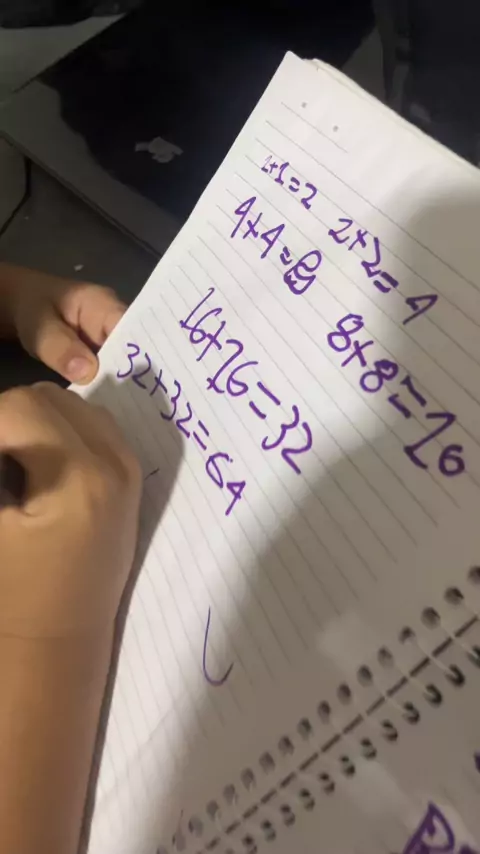 1+1=2
2+2=4
4+4=8
8+8=16
16+16=32
32+32=64